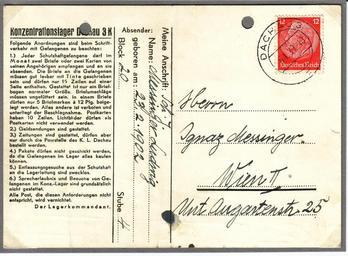 Konzentrationslager Dachau 3 K
Folgende Anordnungen sind beim Schrift-
verkehr mit Gefangenen zu beachten:
1.) Jeder Schutzhaftgefangene darf im
Monat zwei Briefe oder zwei Karten von
seinen Angehörigen empfangen und an sie
absenden. Die Briefe an die Gefangenen
müssen gut lesbar mit Tinte geschrieben
sein und dürfen nur 15 Zeilen auf einer
Seite enthalten. Gestattet ist nur ein Brief-
bogen normaler Größe. Briefumschläge
müssen ungefüttert sein. In einem Briefe
dürfen nur 5 Briefmarken à 12 Pfg. beige-
legt werden. Alles andere ist verboten und
unterliegt der Beschlagnahme. Postkarten
haben 10 Zeilen. Lichtbilder dürfen als
Postkarten nicht verwendet werden.
2.) Geldsendungen sind gestattet.
3.) Zeitungen sind gestattet, dürfen aber
nur durch die Poststelle des K. L. Dachau
bestellt werden.
4.) Pakete dürfen nicht geschickt werden,
da die Gefangenen im Lager alles kaufen
können.
5.) Entlassungsgesuche aus der Schutzhaft
an die Lagerleitung sind zwecklos.
6.) Sprecherlaubnis und Besuche von Ge-
fangenen im Konz.-Lager sind grundsätzlich
nicht gestattet.
Alle Post, die diesen Anforderungen nicht
entspricht, wird vernichtet.
Der Lagerkommandant.
Absender:
Meine Anschrift:
Name: Messinger
geboren am: 23.2.1902
Block 20 Stube 4
DACHAU
12 12
Deutsches Reich
Herrn
Ignaz Messinger
Wien II
Unt. Augartenstr. 25